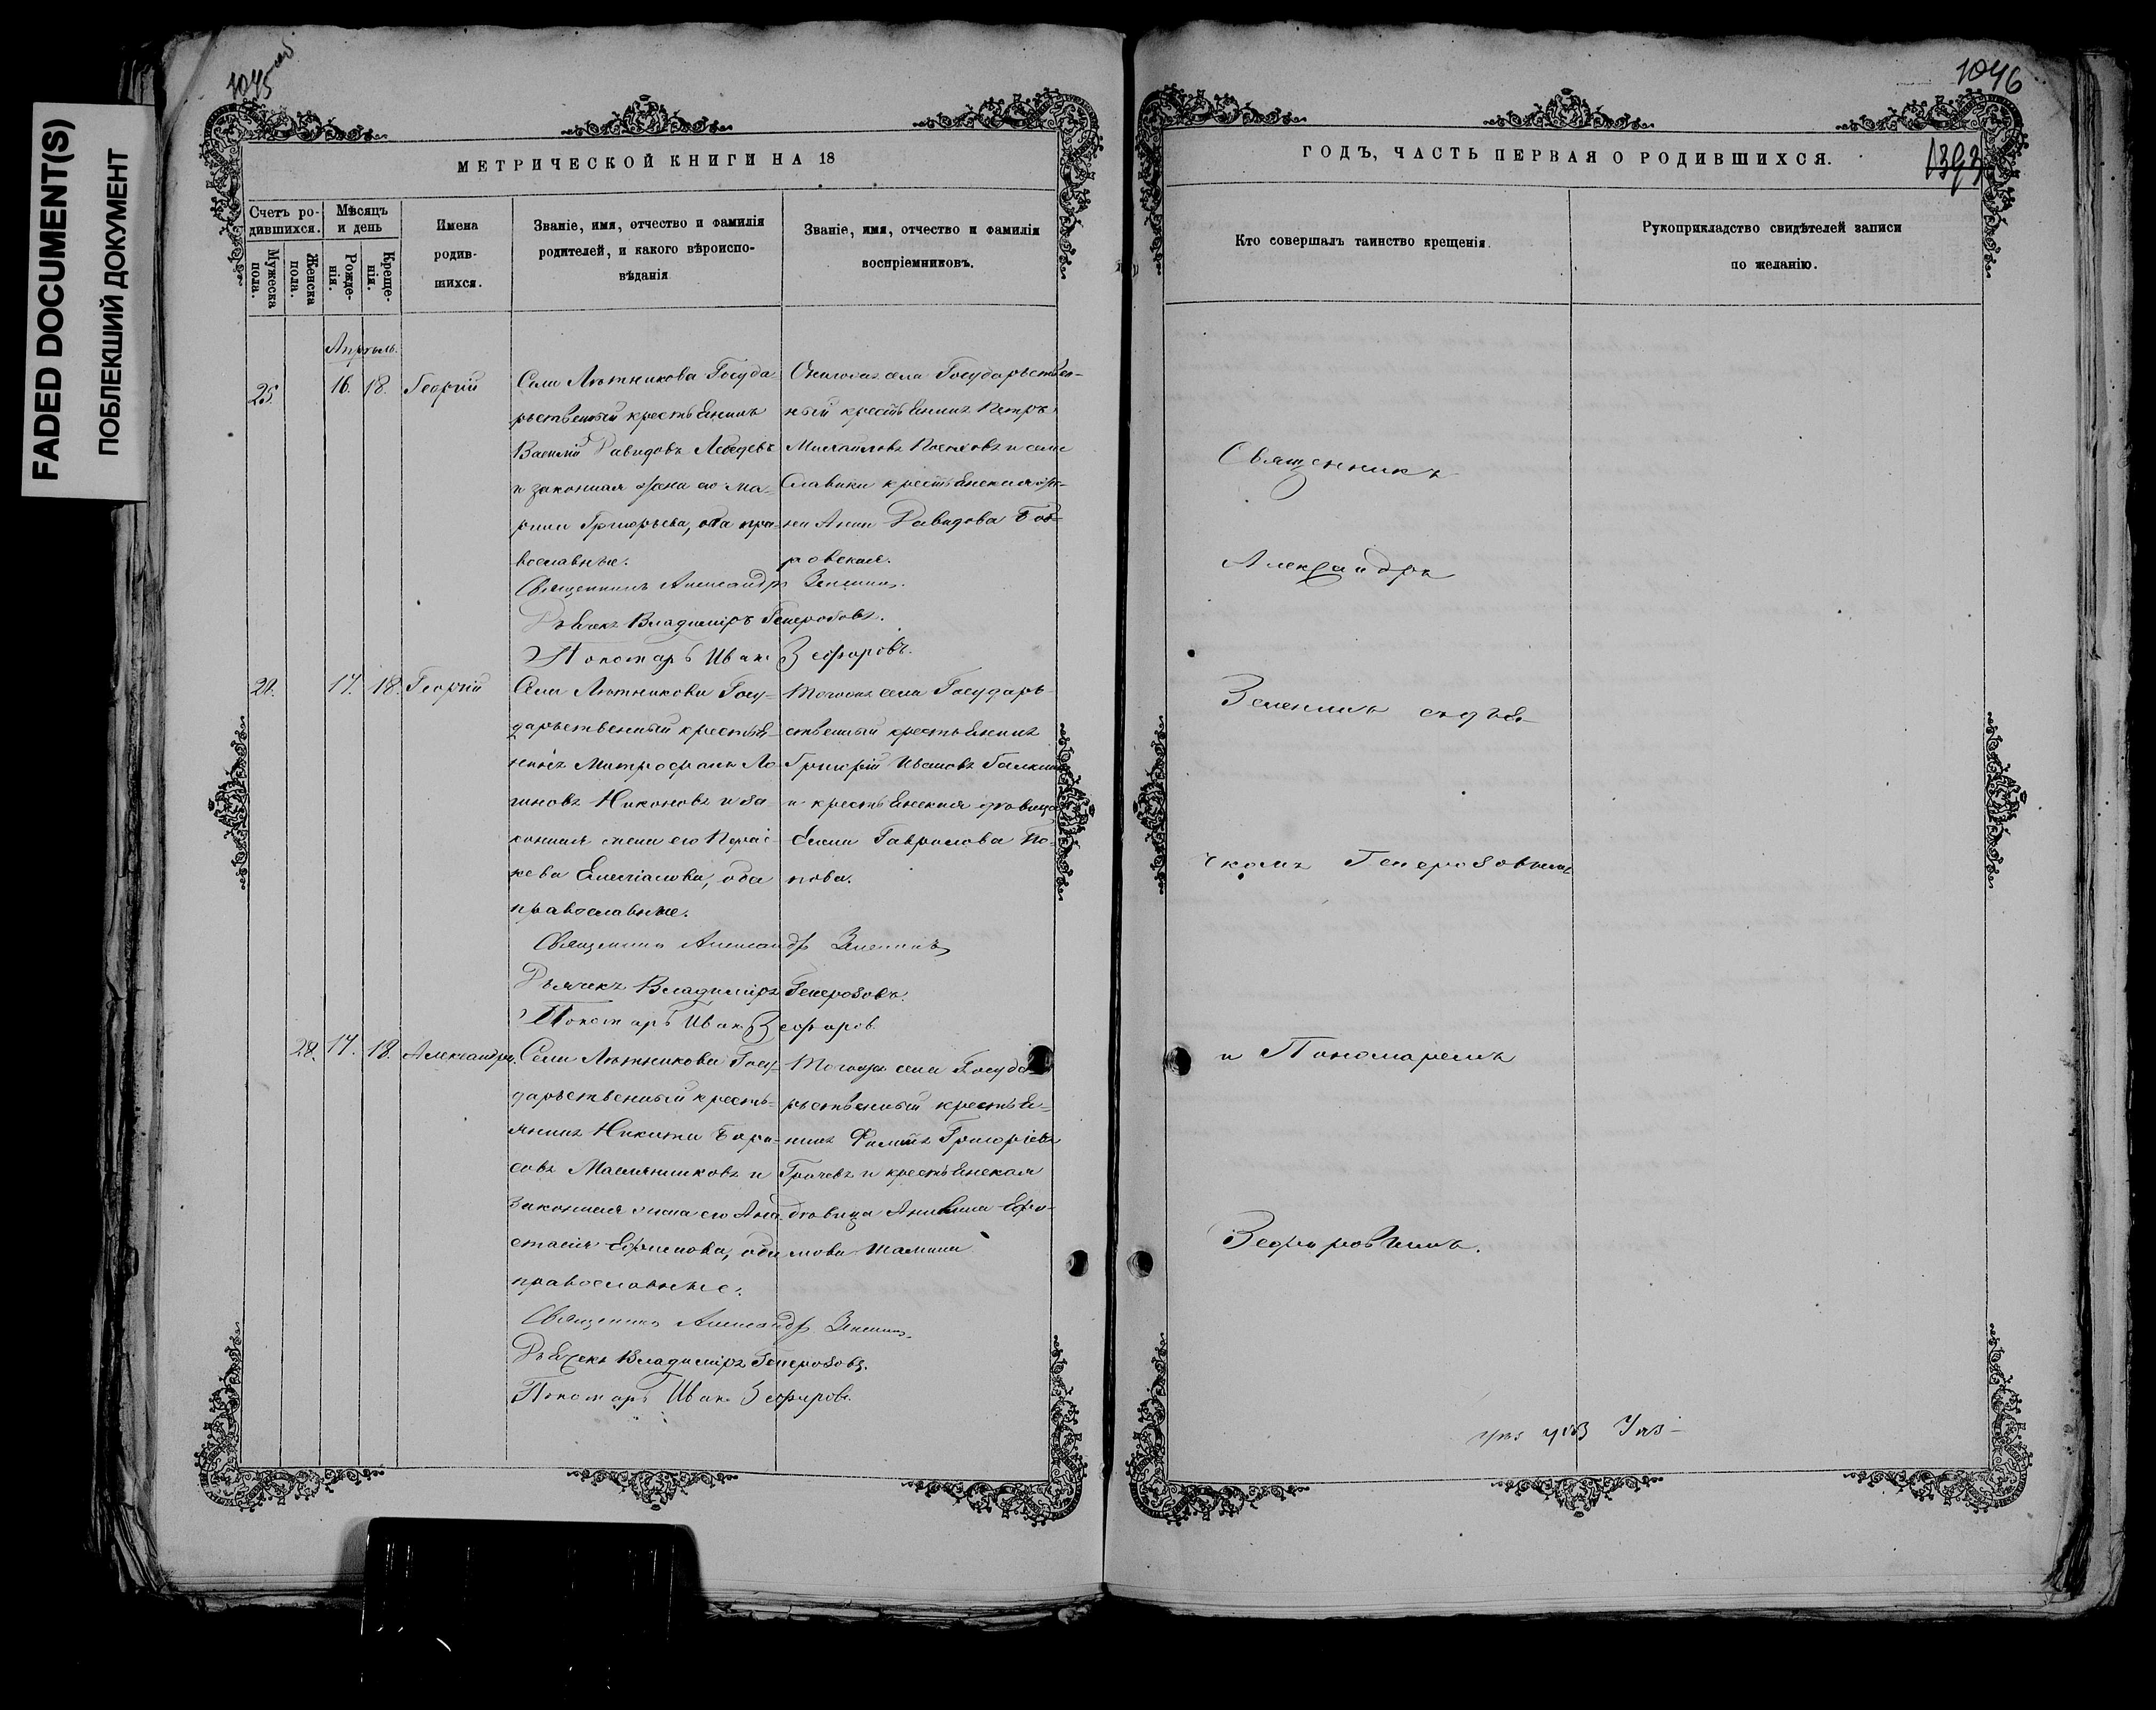 FADED DOCUMENT(S)
ПОБЛЕКШИЙ ДОКУМЕНТ
1045 об
МЕТРИЧЕСКОЙ КНИГИ НА 18
Счетъ ро-
дившихся.
Мѣсяцъ
и день
Имена
родив-
шихся.
Званіе, имя, отчество и фамилія
родителей, и какого вѣроиспо-
вѣданія
Званіе, имя, отчество и фамилія
воспріемниковъ.
Мужеска
пола.
Женска
пола.
Рожде-
нія.
Креще-
нія.
Апрѣль.
25. 16. 18. Георгій
Села Лютникова Госуда
рственный крестьянинъ
Василій Давидовъ Лебедевъ
и законная жена его Ма-
рина Григорьева, оба пра-
вославные.
села Государствен-
ный крестьянинъ Петръ
Михайловъ и села
крестьянская
Анна Давидова Боб-
ровская.
Священникъ Александръ Зеленинъ.
Дьячекъ Владиміръ Генерозовъ.
Пономарь Иванъ Зефировъ.
17. 18. Георгій
Села Лютникова Госу-
дарственный крестья-
нинъ Митрофанъ Ло
гиновъ Никоновъ и за-
конная жена его Парас-
кева, оба
православные.
Тогожъ села Государ-
ственный крестьянинъ
Григорій Ивановъ
и крестьянская вдовица
Гаврилова По-
пова.
Священникъ Александръ Зеленинъ
Дьячекъ Владиміръ Генерозовъ.
Пономарь Иванъ Зефировъ
28. 17. 18. Александра.
Села Лютникова Госу-
дарственный кресть-
янинъ Никита Бори-
совъ Масленниковъ и
законная жена его Ана-
стасія Ефимова, оба
православные.
Тогожъ села Госуда
рственный крестья-
нинъ Филиппъ Григорьевъ
Грачевъ и крестьянская
вдовица Ефи-
мова Шамина
Священникъ Александръ Зеленинъ.
Дьячекъ Владиміръ Генерозовъ.
Пономарь Иванъ Зефировъ.
1046
1393
ГОДЪ, ЧАСТЬ ПЕРВАЯ О РОДИВШИХСЯ.
Кто совершалъ таинство крещенія.
Рукоприкладство свидѣтелей записи
по желанію.
Священникъ
Александръ
Зеленинъ съ дья-
чкомъ Генерозовымъ
и Пономаремъ
Зефировымъ.